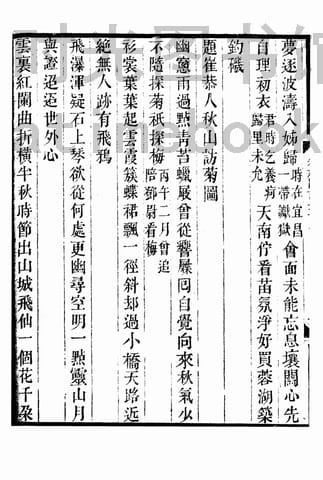 夢逐波濤入姊歸時在宜昌一帶嶽獄會面未能忘息壤關心先
自理初衣君時乞養歸里未允天南佇看苗氛淨好買蓉湖築
釣磯
題崔恭人秋山訪菊圖
幽窻雨過點靑苔蠟屐曾從礬屢囘自覺向來秋氣少
不隨探菊祇探梅丙午二月曾追陪鄧尉看梅
衫裳葉葉起雲霞簇蝶裙飄一徑斜却過小橋天路近
絶無人跡有飛鴉
飛瀑渾疑石上琴欲從何處更幽尋空明一點靈山月
與證迢迢世外心
雲裏紅闌曲折橫半秋時節出山城飛仙一個花千朶